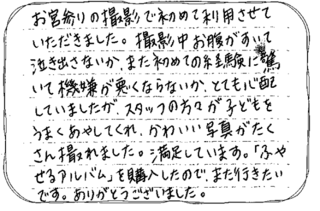 お宮参りの撮影で初めて利用させて
いただきました。撮影中お腹がすいて
泣き出さないか、また初めての経験に驚
いて機嫌が悪くならないか、とても心配
していましたが、スタッフの方々が子どもを
うまくあやしてくれ、かわいい写真がたく
さん撮れました。満足しています。「ふや
せるアルバム」を購入したので、また行きたい
です。ありがとうございました。